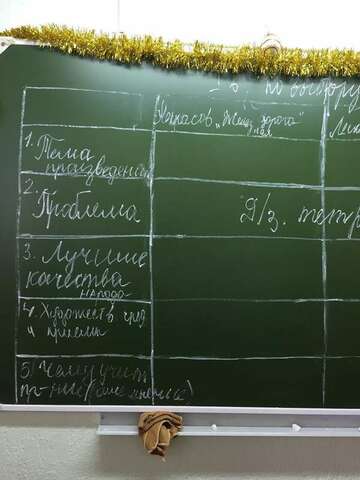 по выбору
Некрасов „Железная дорога"
Леск
1. Тема
произведения
2.
Проблема
Д/з. тетр
3. Лучшие
качества
народа
4. Художеств. сред
и приёмы
5) Чему учит
пр-ние (ваше мнение)